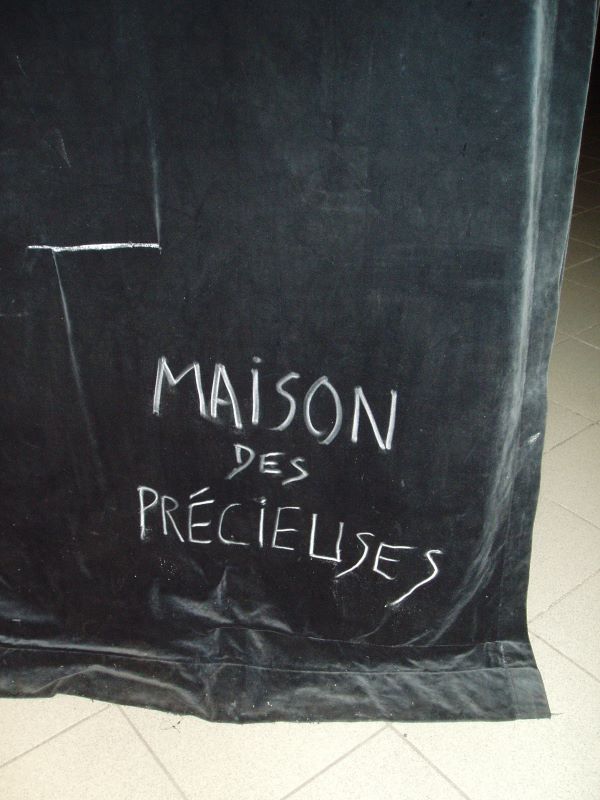 MAiSON
DES
PRÉCiEUSES